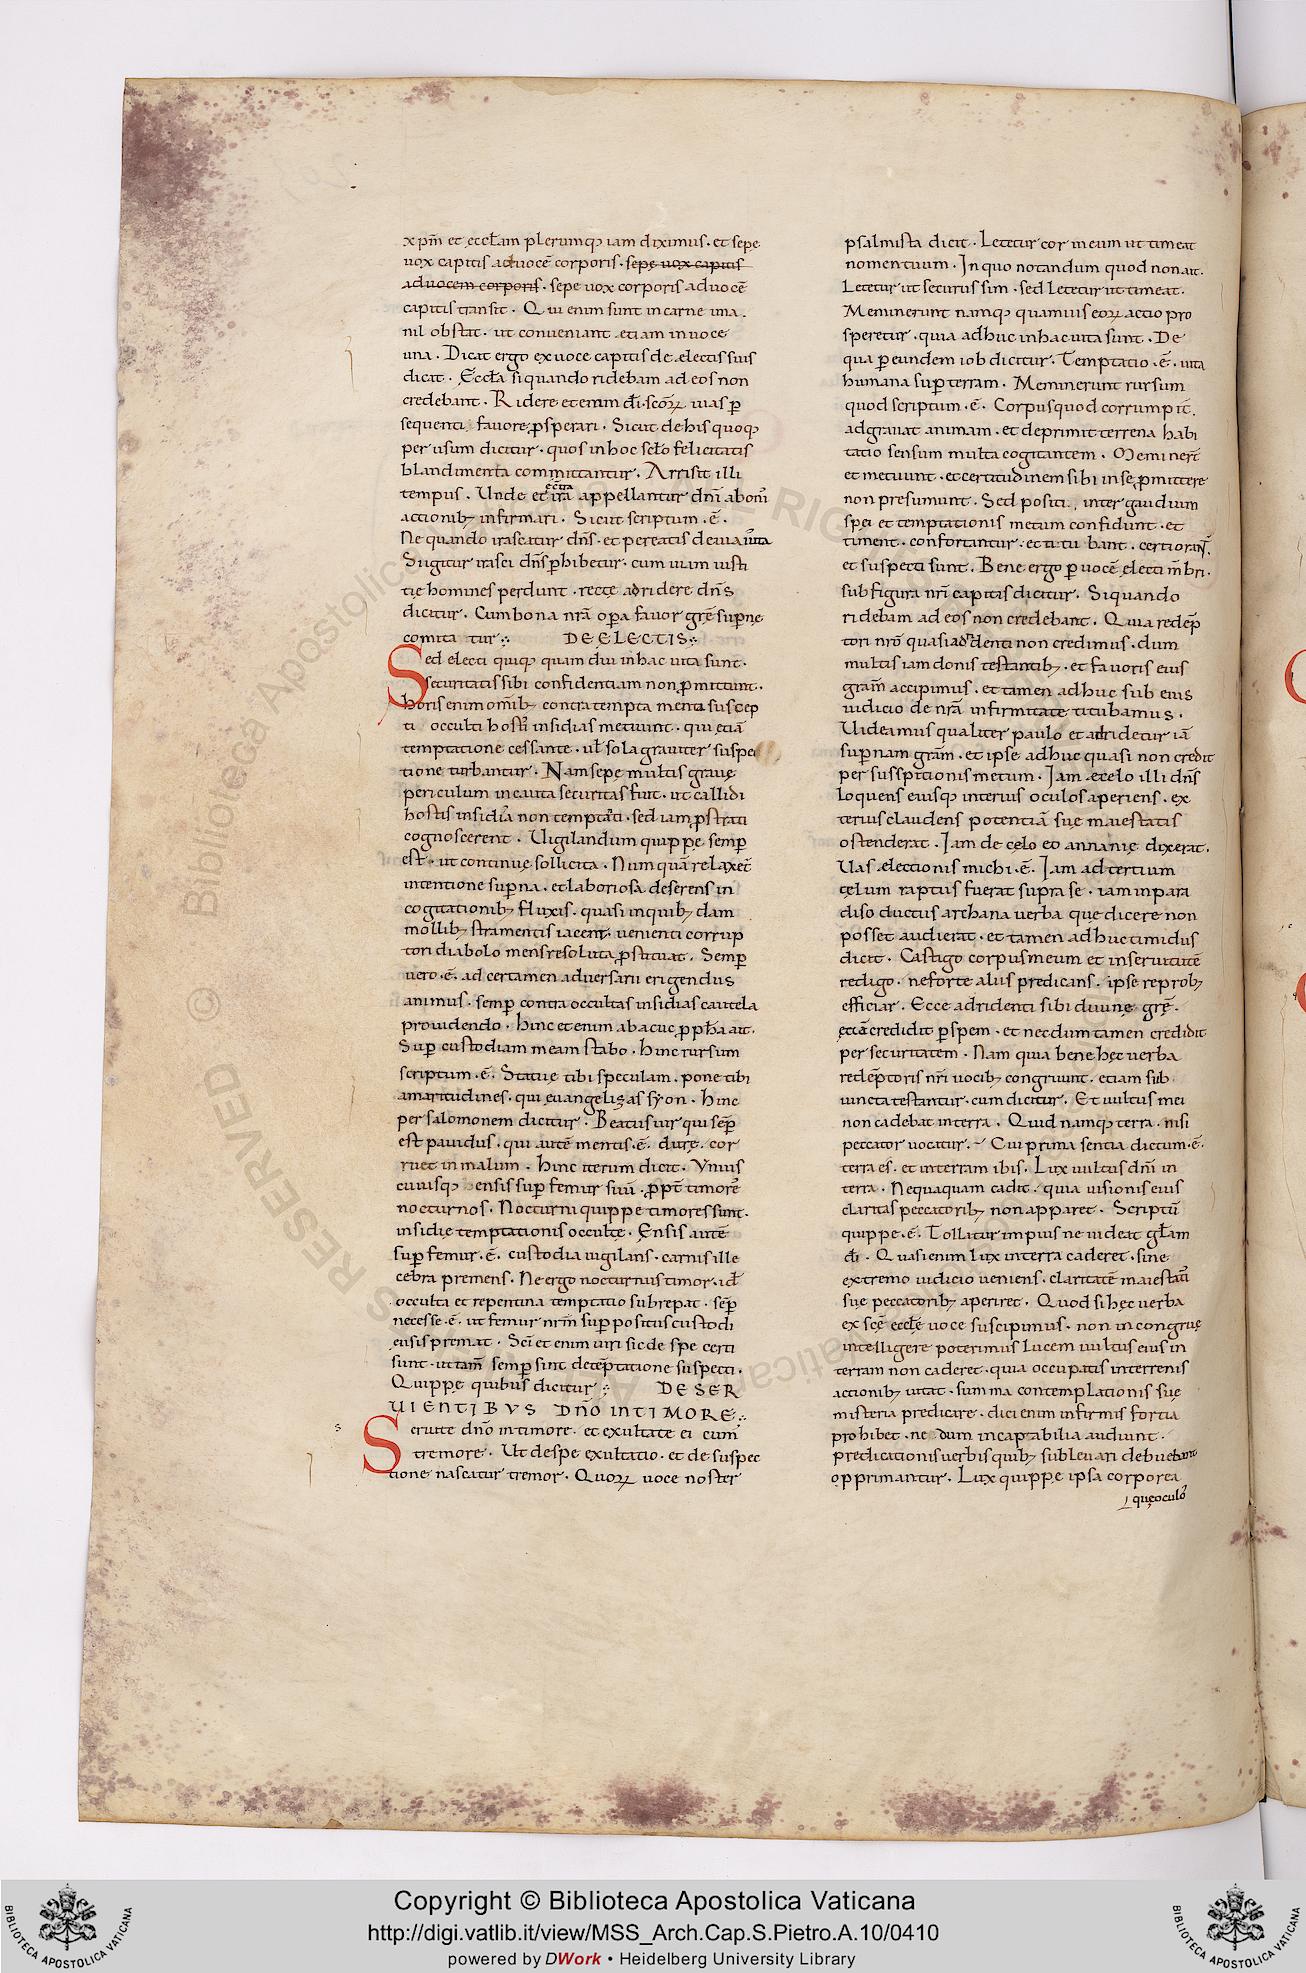 xpm̄ et eccl̄am plerumq; iam diximus · et sepe
uox capitis ad uocē corporis · sepe uox capitis
ad uocem corporis · sepe uox corporis ad uocē
capitis transit · Qui enim sunt in carne una ·
nil obstat · ut conueniant etiam in uoce
una · Dicat ergo ex uoce capitis de electis suis
dicat · Ęccl̄a siquando ridebam ad eos non
credebant · Ridere etenim dī · scōꝝ uias p̄
sequenti fauore ꝓsperari · Sicut de his quoq;
per usum dicitur · quos in hoc sclō felicitatis
blandimenta committantur · Arrisit illi
tempus · Unde et ecōtra ira appellantur dn̄i a bonis
actionib; infirmari · Sicut scriptum · ē ·
Ne quando irascatur dn̄s · et pereatis de uia iusta
Si igitur irasci dn̄s ꝑhibetur · cum uiam iusti
tię homines perdunt · recte adridere dn̄s
dicitur · Cum bona nrā oꝑa fauor grę̄ suꝑnę
comitatur · DE ELECTIS
Sed electi quiq; quam diu in hac uita sunt ·
securitatis sibi confidentiam non ꝑmittunt ·
horis enim omīb; contra temptamenta suscep
ti occulti hostis insidias metuunt · qui etiā
temptatione cessante · ul̄ sola grauiter suspec
tione turbantur · Nam sepe multis grauę
periculum incauta securitas fuit · ut callidi
hostis insidias non temptati · sed iam ꝓstrati
cognoscerent · Uigilandum quippę semꝑ
est · ut continuę sollicita · Numquā relaxet̄
intentione suꝑna · et laboriosa deserens in
cogitationib; fluxis · quasi in quib; dam
mollib; stramentis iacens · uenienti corrup
tori diabolo mens resoluta ꝓstituat · Semꝑ
uero · ē · ad certamen aduersarii erigendus
animus · semꝑ contra occultas insidias cautela
prouidendo · hinc etenim abacuc ꝓpħa ait ·
Suꝑ custodiam meam stabo · hinc rursum
scriptum · ē · Statuę tibi speculam · pone tibi
amaritudines · qui euangelizas syon · hinc
per salomonem dicitur · Beatus uir qui semꝑ
est pauidus · qui autē mentis · ē · durę · cor
ruet in malum · hinc iterum dicit · Unius
cuiusq; ensis suꝑ femur suū · ꝓpt̄ timorē
nocturnos · Nocturni quippe timores sunt ·
insidię temptationis occultę · Ensis autē
suꝑ femur · ē · custodia uigilans · carnis ille
cebra premens · Ne ergo nocturnus timor · id̄
occulta et repentina temptatio subrepat · semꝑ
necesse · ē · ut femur nrm̄ suꝑ positus custodi
ensis premat · Sc̄i etenim uiri sic de spe certi
sunt · ut tam̄ semꝑ sint de tēptatione suspecti ·
Quippę quibus dicitur · DE SER
UIENTIBUS DN̄O IN TIMORE ·
Seruite dn̄o in timore · et exultate ei cum
tremore · Ut de spe exultatio · et de suspec
tione nascatur tremor · Quoꝝ uoce noster
psalmista dicit · Letetur cor meum ut timeat
nomen tuum · In quo notandum quod non ait ·
Letetur ut securus sim · sed letetur ut timeat ·
Meminerunt namq; quamuis eoꝝ actio pro
speretur · quia adhuc in hac uita sunt · De
qua ꝑ eundem iob dicitur · Temptatio · ē · uita
humana suꝑ terram · Meminerunt rursum
quod scriptum · ē · Corpus quod corrumpit̄ ·
adgrauat animam · et deprimit terrena habi
tatio sensum multa cogitantem · Meminer̄t
et metuunt · et certitudinem sibi in se ꝓmittere
non presumunt · Sed positi inter gaudium
spei et temptationis metum confidunt · et
timent · confortantur · et titubant · certi orant̄
et suspecti sunt · Bene ergo ꝑ uocē electi mēbri ·
sub figura nrī capitis dicitur · Siquando
ridebam ad eos non credebant · Quia redēp
tori nrō quasi adridenti non credimus · dum
multis iam donis testantib; · et fauoris eius
gram̄ accipimus · et tamen adhuc sub eius
iudicio de nrā infirmitate titubamus ·
Uideamus qualiter paulo et adridetur iā
suꝑnam gram̄ · et ipse adhuc quasi non credit
per susspitionis metum · Iam ę celo illi dn̄s
loquens eiusq; interius oculos aperiens · ex
terius claudens potentiā suę maiestatis
ostenderat · Iam de celo eo annanię dixerat ·
Uas ęlectionis michi · ē · Iam ad tertium
cęlum raptus fuerat supra se · iam in para
diso ductus archana uerba que dicere non
posset audierat · et tamen adhuc timidus
dicit · Castigo corpus meum et in seruitutē
redigo · ne forte aliis predicans · ipse reprob;
efficiar · Ecce adridenti sibi diuinę grę̄ ·
ęccā credidit ꝑ spem · et necdum tamen credidit
per securitatem · Nam quia bene hęc uerba
redēptoris nrī uocib; congruunt · etiam sub
iuncta testantur · cum dicitur · Et uultus mei
non cadebat in terra · Quid namq; terra · nisi
peccator uocatur · Cui prima sentia dictum · ē ·
terra es · et in terram ibis · Lux uultus dn̄i in
terra · Nequaquam cadit · quia uisionis eius
claritas peccatorib; non apparet · Scriptū
quippe · ē · Tollatur impius ne uideat gl̄am
dī · Quasi enim lux in terra caderet · si ne
extremo iudicio ueniens · claritatē maiestatis
suę peccatorib; aperiret · Quod si hęc uerba
ex scę̄ ecclę̄ uoce suscipimus · non incongruę
intelligere poterimus lucem uultus eius in
terram non caderet · quia occupatis in terrenis
actionib; uitat · summa contemplationis suę
misteria predicare · dici enim infirmis fortia
prohibet · ne dum incapabilia audiunt ·
predicationis uerbis quib; subleuari debuerant
opprimantur · Lux quippę ipsa corporea
quę oculos
Copyright © Biblioteca Apostolica Vaticana
http://digi.vatlib.it/view/MSS_Arch.Cap.S.Pietro.A.10/0410
powered by DWork • Heidelberg University Library